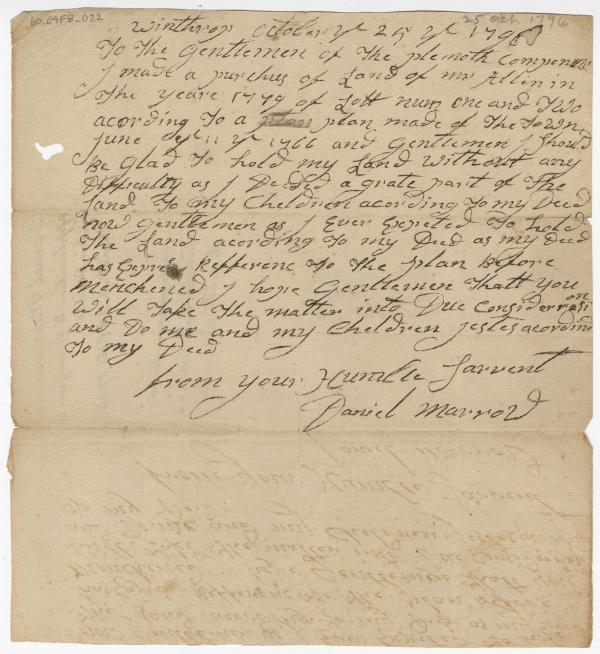 60_09F8_022
25 Oct. 1796
Winthrop October ye 25 ye 1796
To The Gentlemen of The plemoth Compene
I made a purches of Land of mr Allin in
The yeare 1779 of Lott num one and Two
acording To a plan plan made of The Town
June ye 11 ye 1766 and Gentlemen I Should
Be Glad To hold my Land without any
Difficulty as I Deeded a grate part of The
Land To my Children acording To my Deed
now Gentlemen as I Ever Expeted To hold
The Land acording To my Deed as my Deed
has Expres Refferenc To The plan Before
menchened I hope Gentlemen Thatt you
will Take The matter into Due Considerrasion
and Do me and my Children Jestes acording
To my Deed
from your Humble Sarvent
Daniel Marrow